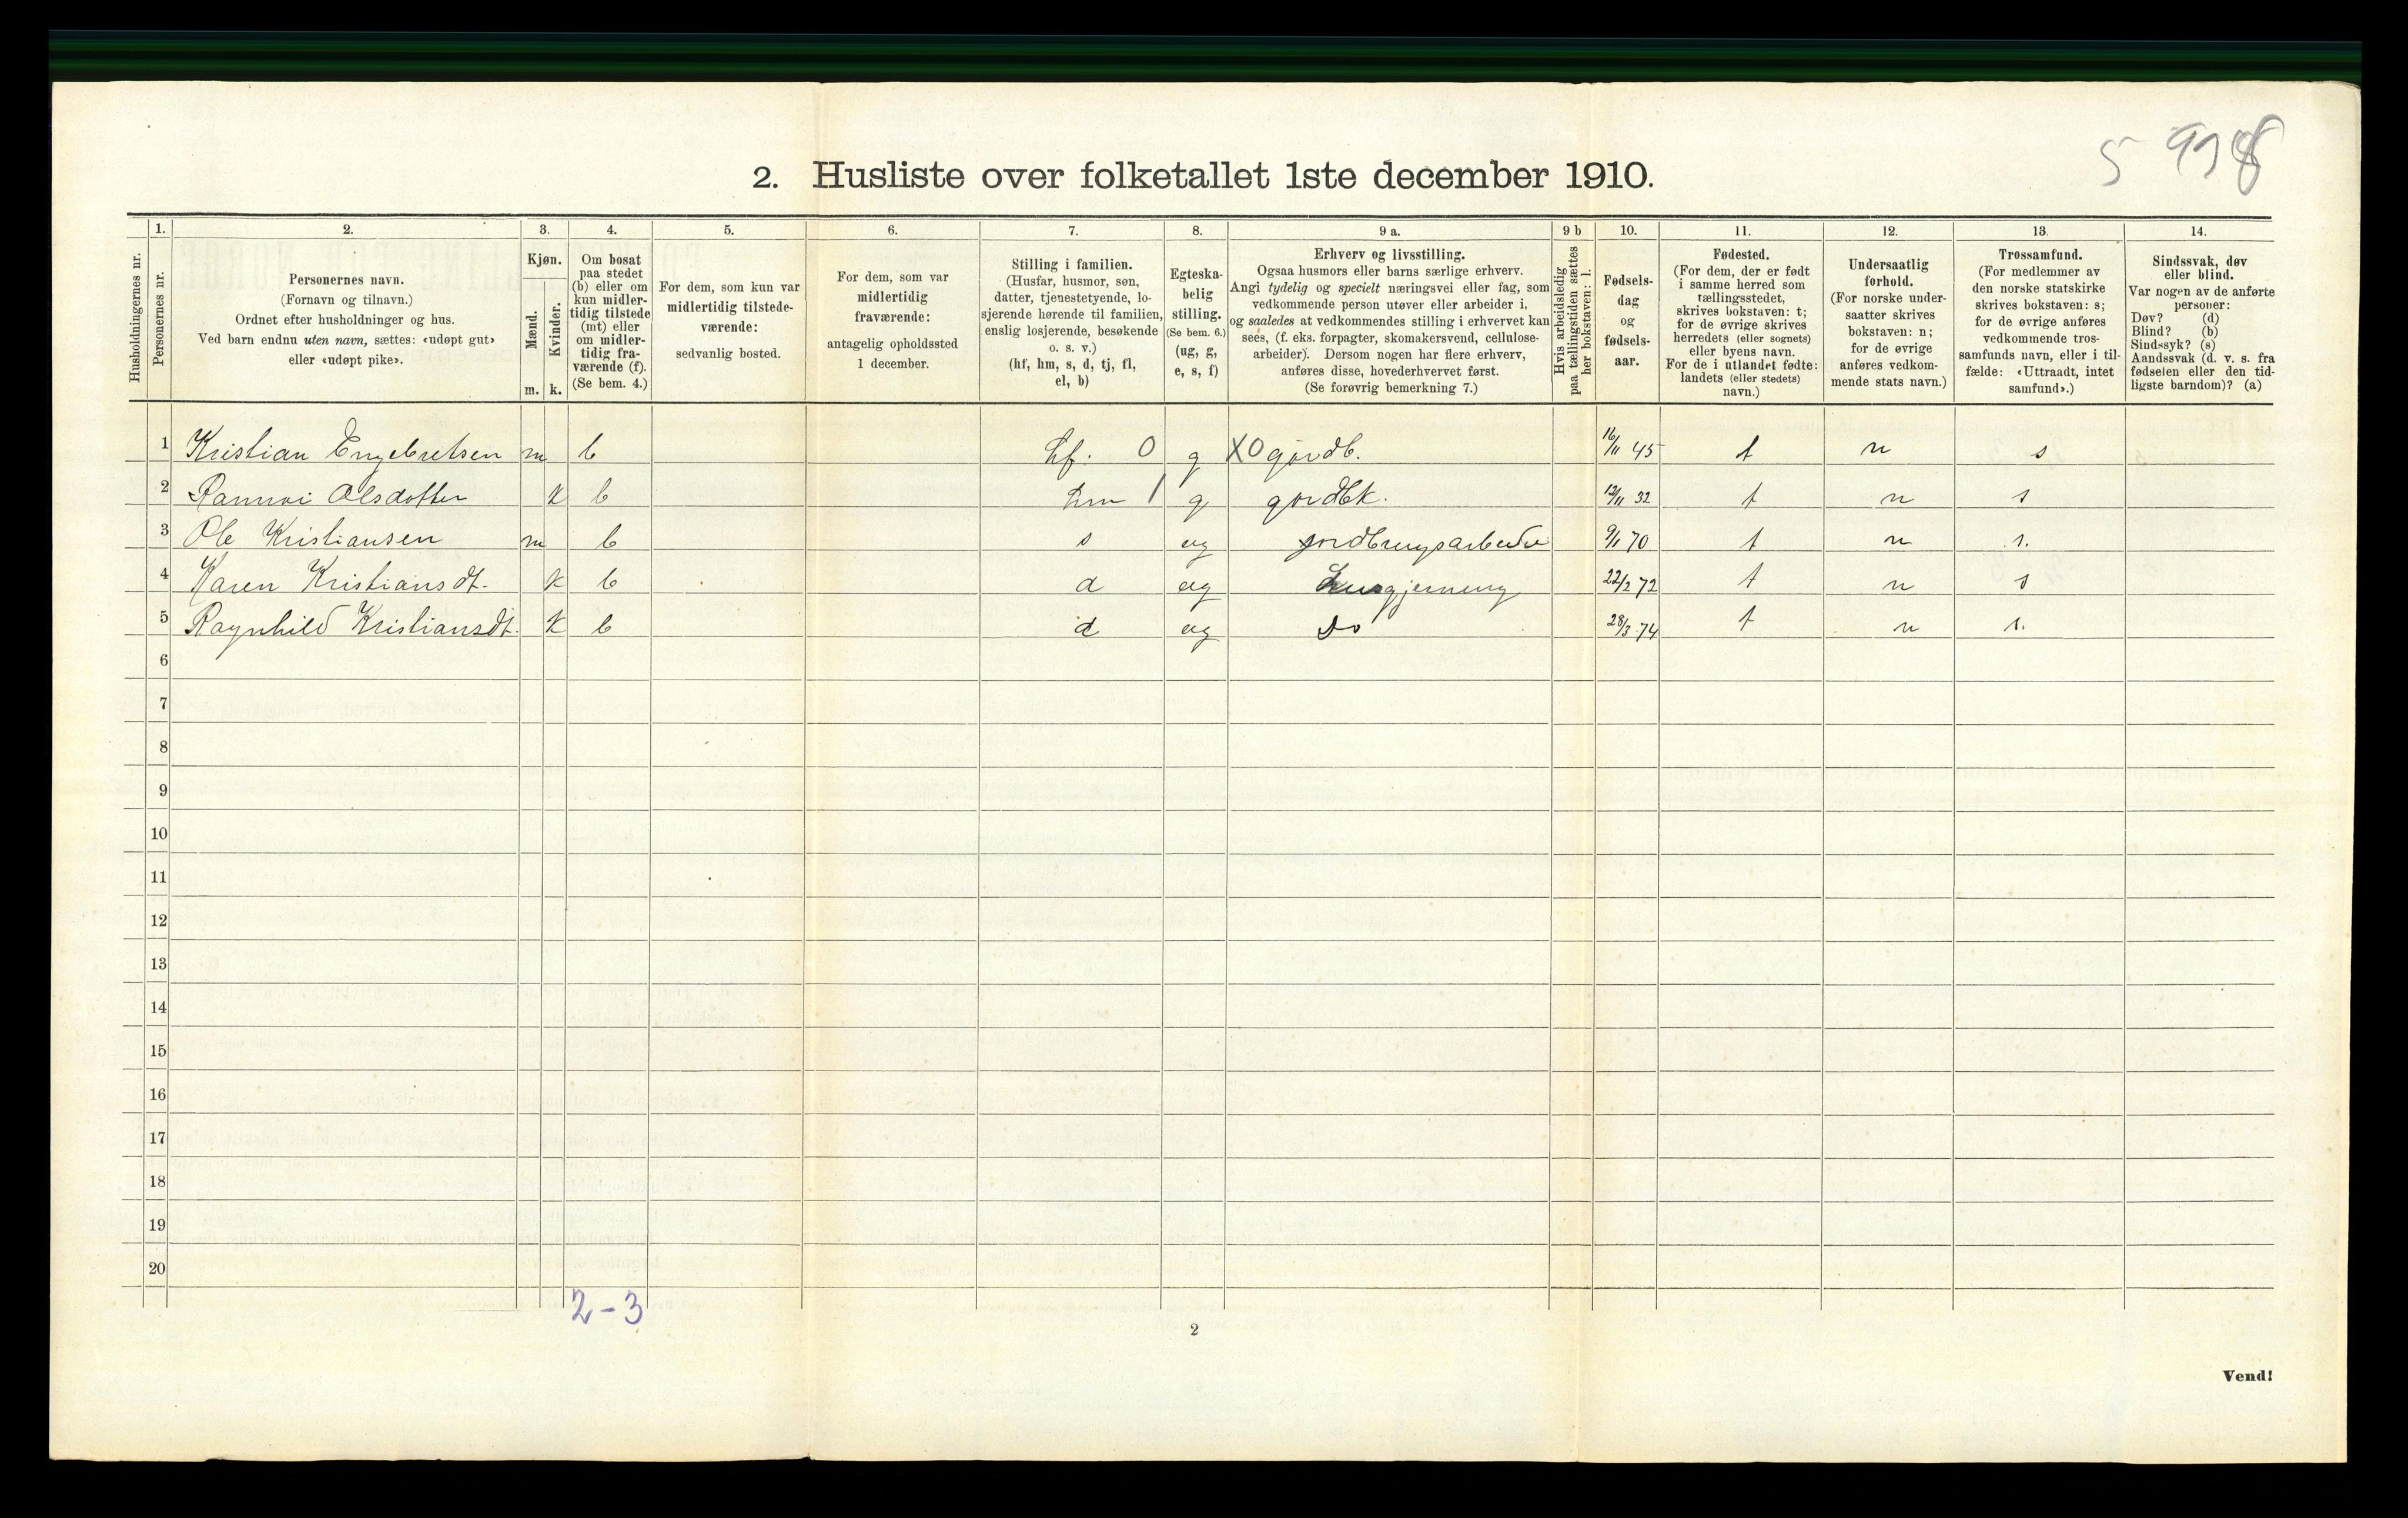 5 998
2. Husliste over folketallet 1ste december 1910.
Husholdningernes nr.
1. Personernes nr.
2. Personernes navn.
(Fornavn og tilnavn.)
Ordnet efter husholdninger og hus.
Ved barn endnu uten navn, sættes: «udøpt gut»
eller «udøpt pike».
3. Kjøn.
Mænd. Kvinder.
m. k.
4. Om bosat
paa stedet
(b) eller om
kun midler-
tidig tilstede
(mt) eller
om midler-
tidig fra-
værende (f).
(Se bem. 4.)
5. For dem, som kun var
midlertidig tilstede-
værende:
sedvanlig bosted.
6. For dem, som var
midlertidig
fraværende:
antagelig opholdssted
1 december.
7. Stilling i familien.
(Husfar, husmor, søn,
datter, tjenestetyende, lo-
sjerende hørende til familien,
enslig losjerende, besøkende
o. s. v.)
(hf, hm, s, d, tj, fl,
el, b)
8. Egteska-
belig
stilling.
(Se bem. 6.)
(ug, g,
e, s, f)
9 a. Erhverv og livsstilling.
Ogsaa husmors eller barns særlige erhverv.
Angi tydelig og specielt næringsvei eller fag, som
vedkommende person utøver eller arbeider i,
og saaledes at vedkommendes stilling i erhvervet kan
sees, (f. eks. forpagter, skomakersvend, cellulose-
arbeider). Dersom nogen har flere erhverv,
anføres disse, hovederhvervet først.
(Se forøvrig bemerkning 7.)
9 b Hvis arbeidsledig
paa tællingstiden sættes
her bokstaven: l.
10. Fødsels-
dag
og
fødsels-
aar.
11. Fødested.
(For dem, der er født
i samme herred som
tællingsstedet,
skrives bokstaven: t;
for de øvrige skrives
herredets (eller sognets)
eller byens navn.
For de i utlandet fødte:
landets (eller stedets)
navn.)
12. Undersaatlig
forhold.
(For norske under-
saatter skrives
bokstaven: n;
for de øvrige
anføres vedkom-
mende stats navn.)
13. Trossamfund.
(For medlemmer av
den norske statskirke
skrives bokstaven: s;
for de øvrige anføres
vedkommende tros-
samfunds navn, eller i til-
fælde: «Uttraadt, intet
samfund».)
14. Sindssvak, døv
eller blind.
Var nogen av de anførte
personer:
Døv? (d)
Blind? (b)
Sindssyk? (s)
Aandssvak (d. v. s. fra
fødselen eller den tid-
ligste barndom)? (a)
1 Kristian Engebretsen m b hf. 0 g X0 gordb. 16/11 45 t n s
2 Rannvei Olsdotter k b hm 1 g gordbk. 12/11 32 t n s
3 Ole Kristiansen m b s ug jordbrugsarbeder 9/1 70 t n s.
4 Karen Kristiansdt. k b d ug husgjerning 22/2 72 t n s
5 Ragnhild Kristiansdt. k b d ug do 28/3 74 t n s.
6
7
8
9
10
11
12
13
14
15
16
17
18
19
20
2-3
2
Vend!